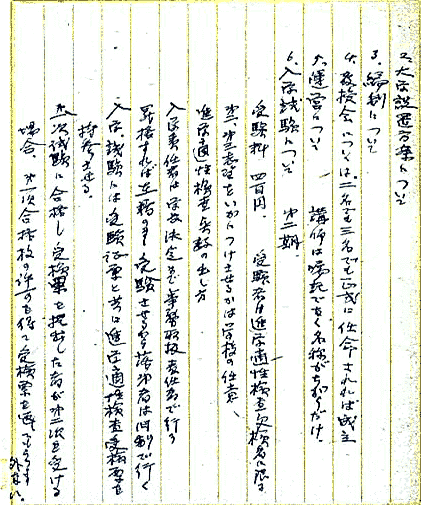 2、大学設置方策について
3、編制について
4、教授会については二名でも三名でも正式に任命されれば成立
5、運営について 講師は嘱託でなく名称がちがうだけ
6、入学試験について 第二期、
受験料 四百円、 受験者は進学適性検査受検者に限る
第二、第三志望をいかにつけさせるかは学校の任意、
進学適性検査点数の出し方
入学責任者は学長決定まで事務取扱責任者で行う
入学試験には受験証票と共に進学適性検査受検票を
持参させる。
第一次試験に合格し受検票を提出した者が第二次を受ける
場合、第一次合格校の許可を得て受検票を